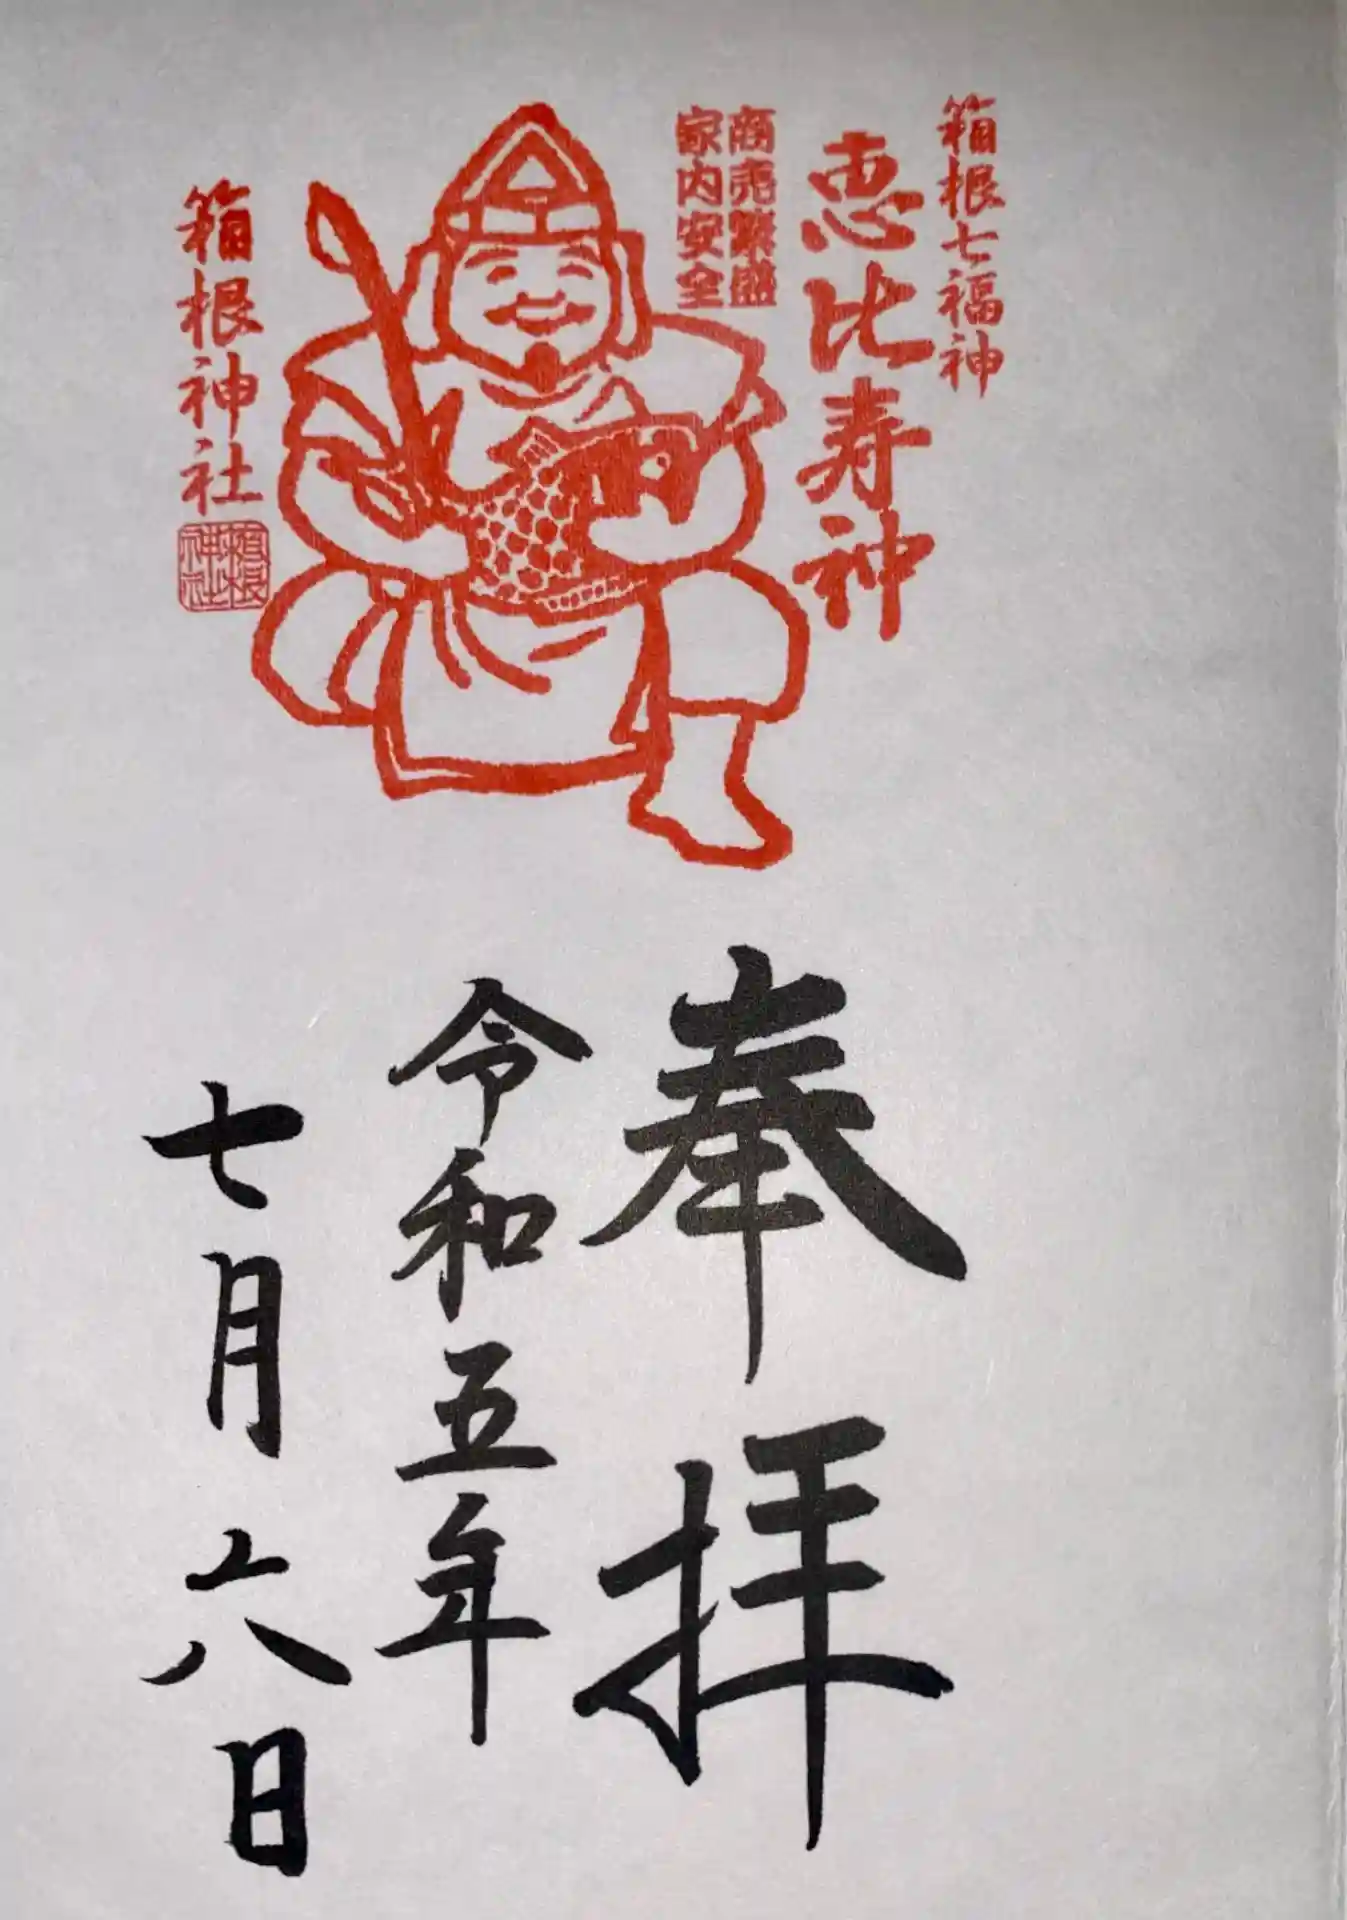 箱根七福神
恵比寿神
商売繁盛
家内安全
箱根神社
箱根神社
奉拝
令和五年
七月六日